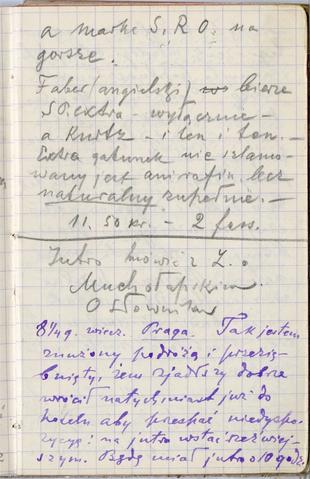 a markę S.R.O. na
gorszę.
Faber (angielski) bierze
SO. extra – wyłącznie –
a Kurtz – i ten i ten. –
Extra gatunek nie
jest ani lecz
naturalny zupełnie. –
11.50 kr. – 2 fass.
Jutro mówić z Z.
Muchołapskim
O Słownikn
8¼ g. wiecz. Praga. Tak jestem
znużony podróżą i przezię-
bnięty, żem zjadłszy dobrze
wrócił natychmiast już do
hotelu aby przespać niedyspo-
zycyę i na jutro wstać rzeźwiej-
szym. Będę miał jutro 10 godz.